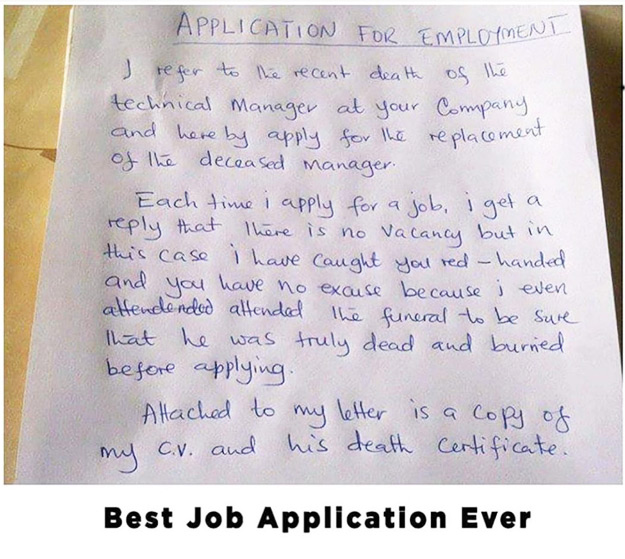 APPLICATION FOR EMPLOYMENT
I refer to the recent death of the
technical Manager at your Company
and hereby apply for the replacement
of the deceased manager.
Each time i apply for a job, i get a
reply that there is no vacancy but in
this case i have caught you red-handed
and you have no excuse because i even
attended the funeral to be sure
that he was truly dead and burried
before applying.
Attached to my letter is a copy of
my C.V. and his death certificate.
Best Job Application Ever